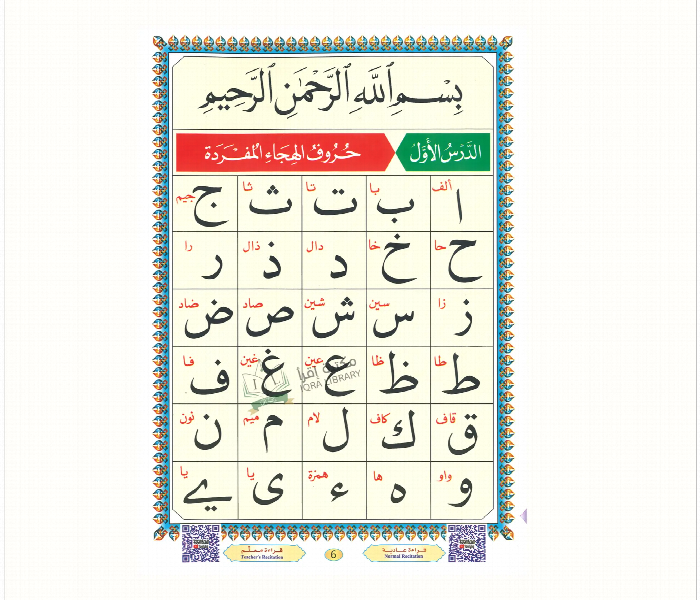 بِسْمِ ٱللَّهِ ٱلرَّحْمَٰنِ ٱلرَّحِيمِ
الدَّرْسُ الأَوَّل
حُرُوفُ الهِجَاءِ المُفْرَدَة
ا ألف ب با ت تا ث ثا ج جيم
ح حا خ خا د دال ذ ذال ر را
ز زا س سين ش شين ص صاد ض ضاد
ط طا ظ ظا ع عين غ غين ف فا
مكتبة إقرأ
IQRA LIBRARY
ق قاف ك كاف ل لام م ميم ن نون
و واو ه ها ء همزة ى يا ے يا
قراءة عادية
Normal Recitation
6
قراءة معلم
Teacher's Recitation